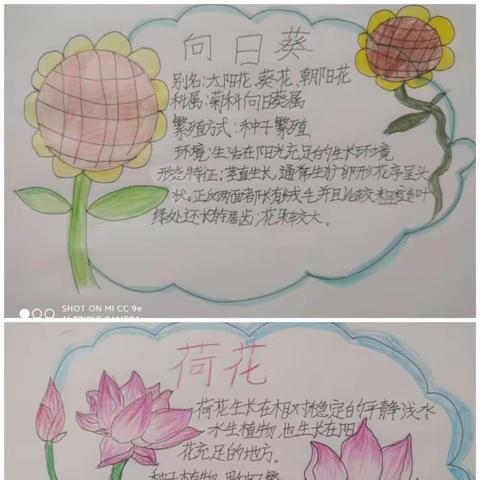 向日葵
别名:太阳花、葵花、朝阳花
科属:菊科向日葵属
繁殖方式:种子繁殖
环境:生活在阳光充足的生长环境
形态特征:茎直生长,通常生于卵形花序呈头
状。正反两面都长有绒毛并且比较粗糙,叶
缘处还长有锯齿;花朵较大。
SHOT ON MI CC 9e
AI TRIPLE CAMERA
荷花
荷花生长在相对稳定的平静浅水
水生植物,也生长在阳
花充足的地方。